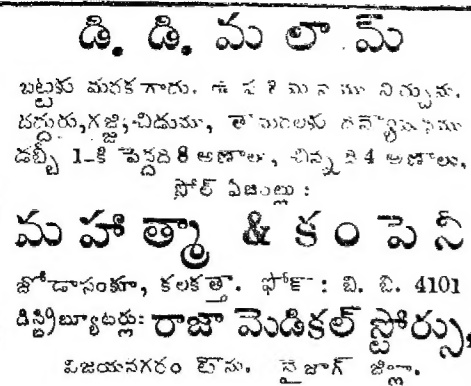 డి. డి. మలామ్
బట్టకు మరక కాదు. ఉపశమనము నిచ్చును.
దద్దురు, గజ్జి, చిడుము, తామరలకు
డబ్బీ 1-కి పెద్దది 8 అణాలు, చిన్నది 4 అణాలు.
సోల్ ఏజంట్లు :
మహాత్మా & కంపెనీ
జోడాసంకూ, కలకత్తా. ఫోన్ : బి. బి. 4101
డిస్ట్రిబ్యూటర్లు: రాజా మెడికల్ స్టోర్సు,
విజయనగరం టౌను. వైజాగ్ జిల్లా.